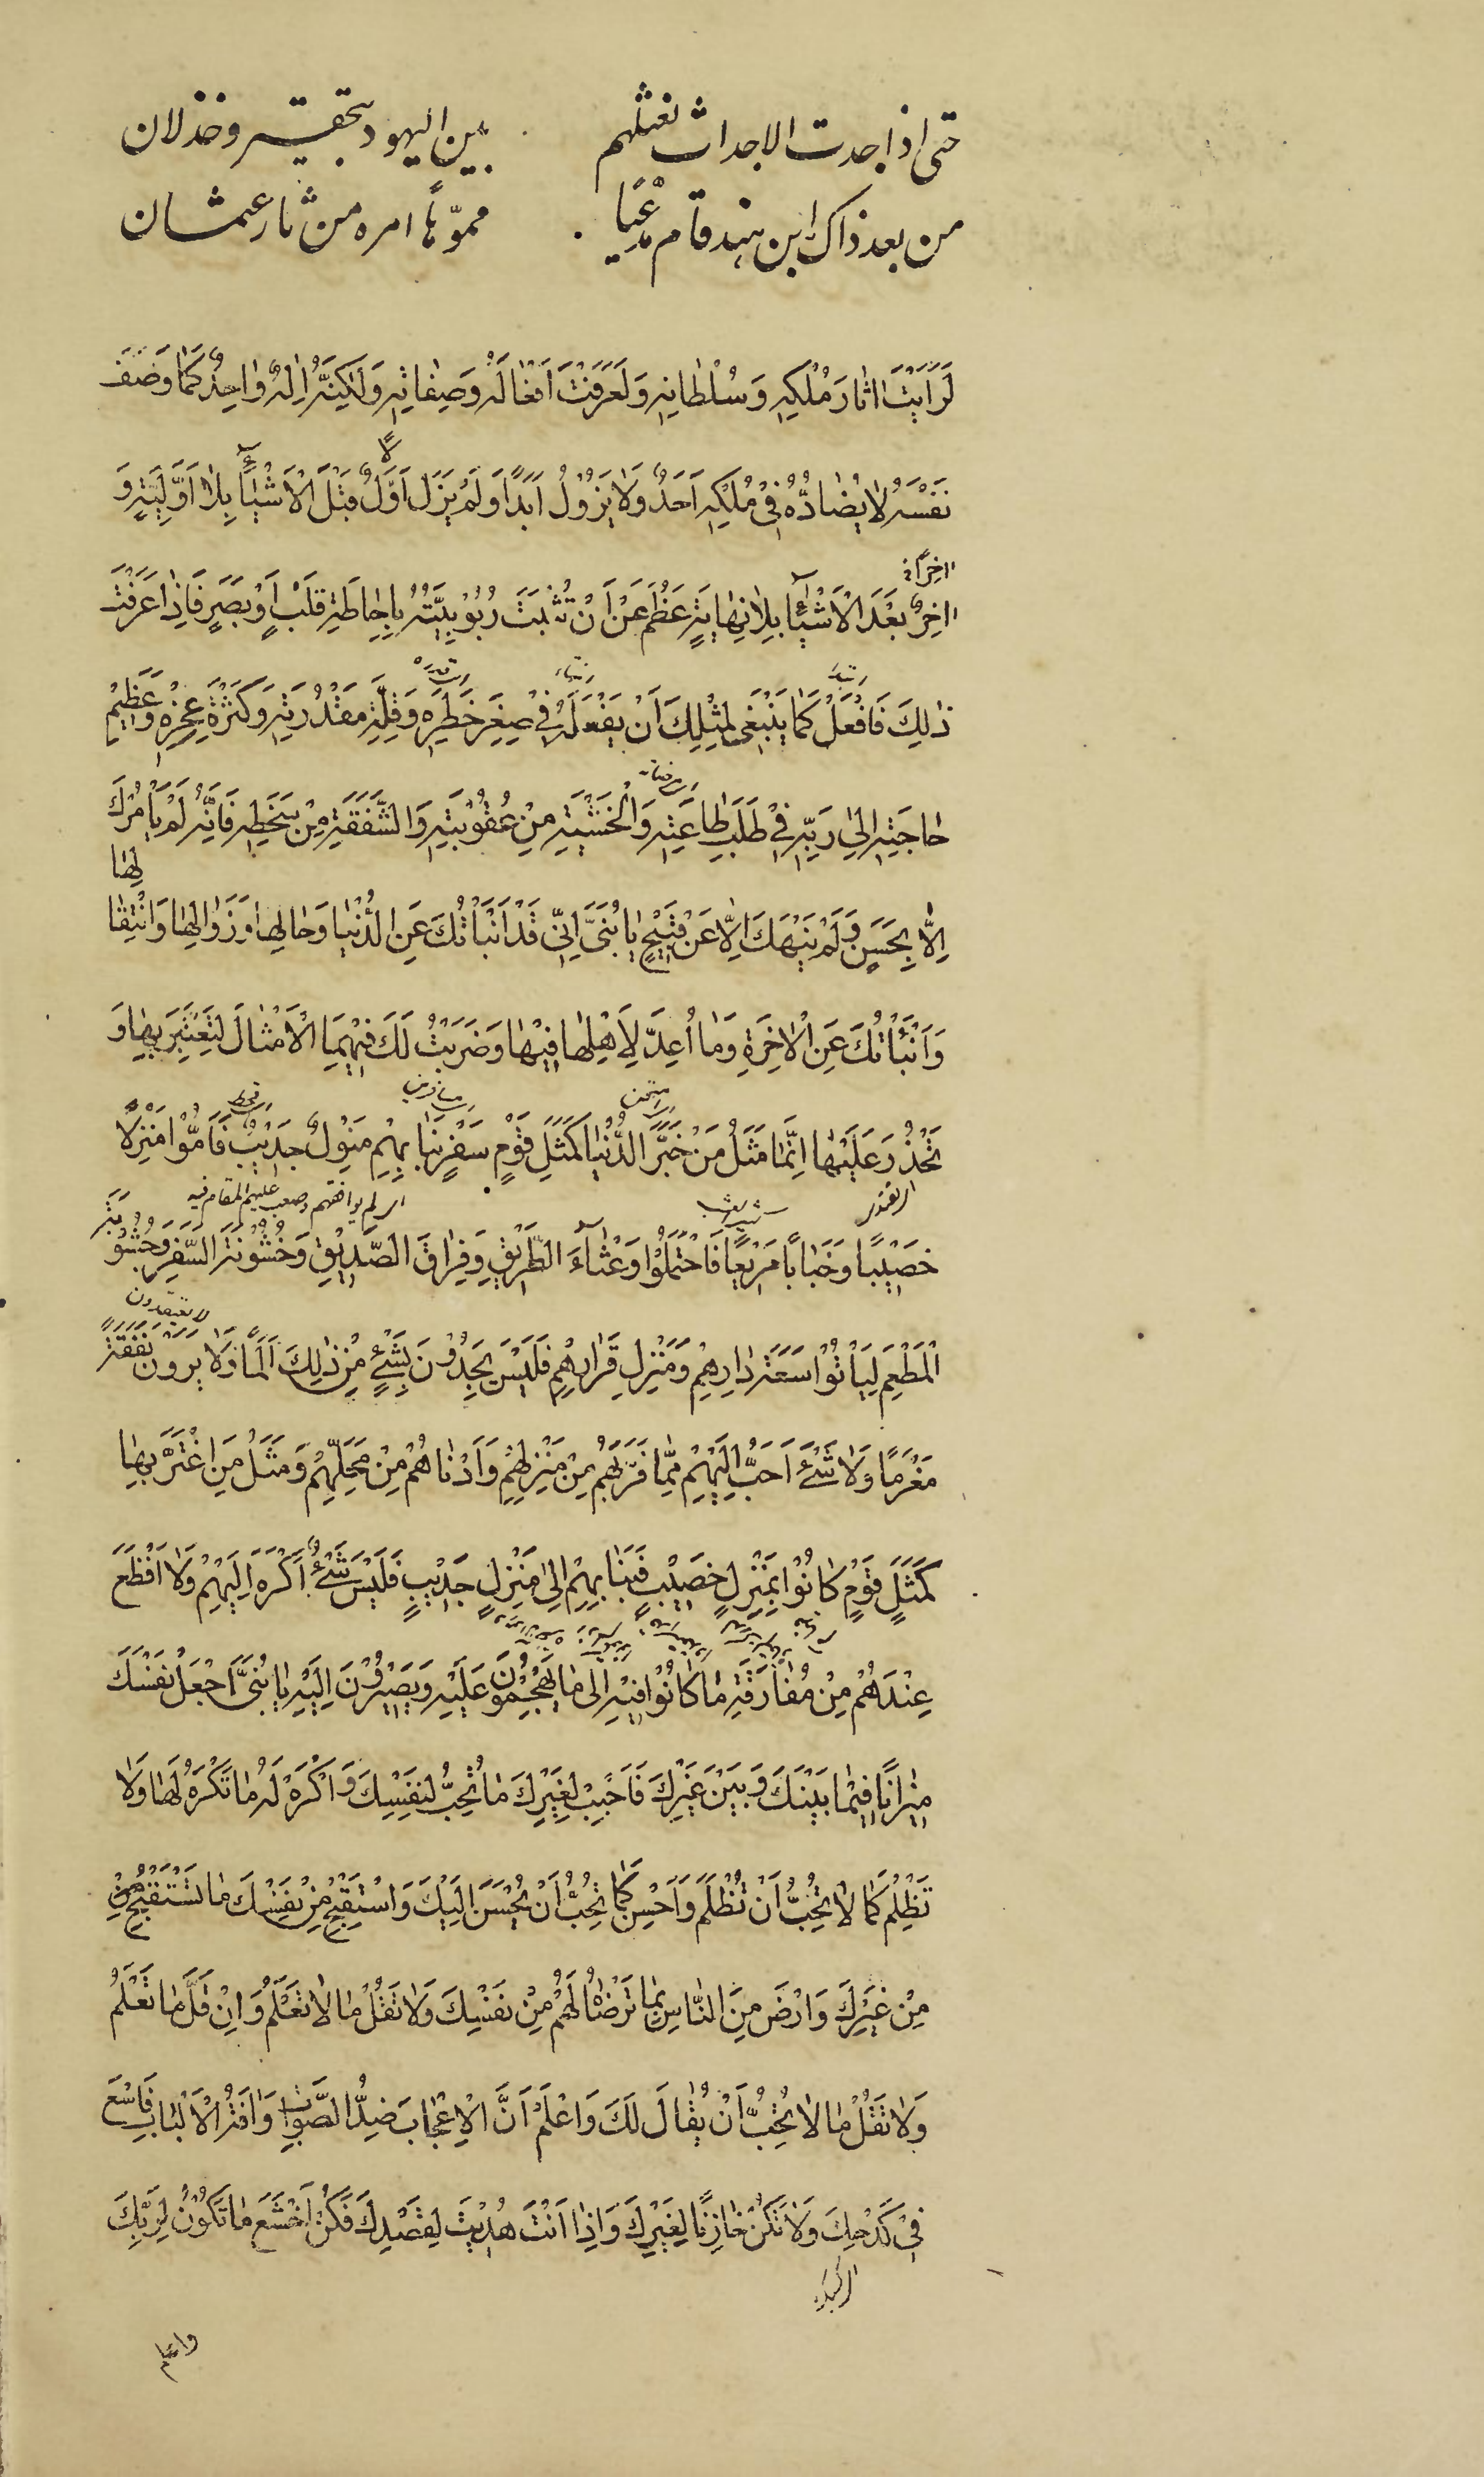 حتى اذا جدت الاجداث نعثلهم بين اليهود بتحقير وخذلان
من بعد ذاك ابن هند قام مدّعيا مموّها امره من ثار عثمان
لَرَاَيْتَ اٰثارَ مُلْكِهِ وَسُلْطانِهِ وَلَعَرَفْتَ اَفْعالَهُ وَصِفاتِهِ وَلٰكِنَّهُ اِلٰهٌ واحِدٌ كَما وَصَفَ
نَفْسَهُ لا يُضادُّهُ فِي مُلْكِهِ اَحَدٌ وَلا يَزُولُ اَبَدًا وَلَمْ يَزَلْ اَوَّلٌ قَبْلَ الْاَشْياءِ بِلا اَوَّلِيَّةٍ وَ
اخِرًا
اخِرٌ بَعْدَ الْاَشْياءِ بِلا نِهايَةٍ عَظُمَ عَنْ اَنْ تُثْبَتَ رُبُوبِيَّتُهُ بِاِحاطَةِ قَلْبٍ اَوْ بَصَرٍ فَاِذا عَرَفْتَ
ذٰلِكَ فَافْعَلْ كَما يَنْبَغِي لِمِثْلِكَ اَنْ يَفْعَلَهُ فِي صِغَرِ خَطَرِهِ وَقِلَّةِ مَقْدُرَتِهِ وَكَثْرَةِ عَجْزِهِ وَعَظِيمِ
حاجَتِهِ اِلىٰ رَبِّهِ فِي طَلَبِ طاعَتِهِ وَالْخَشْيَةِ مِنْ عُقُوبَتِهِ وَالشَّفَقَةِ مِنْ سَخَطِهِ فَاِنَّهُ لَمْ يَأْمُرْكَ
اِلّا بِحَسَنٍ وَلَمْ يَنْهَكَ اِلّا عَنْ قَبِيحٍ يا بُنَيَّ اِنِّي قَدْ اَنْبَأْتُكَ عَنِ الدُّنْيا وَحالِها وَزَوالِها وَانْتِقالِها
وَاَنْبَأْتُكَ عَنِ الْاٰخِرَةِ وَما اُعِدَّ لِاَهْلِها فِيها وَضَرَبْتُ لَكَ فِيهِمَا الْاَمْثالَ لِتَعْتَبِرَ بِها وَ
تَحْذُوَ عَلَيْها اِنَّما مَثَلُ مَنْ خَبَرَ الدُّنْيا كَمَثَلِ قَوْمٍ سَفْرٍ نَبا بِهِمْ مَنْزِلٌ جَدِيبٌ فَاَمُّوا مَنْزِلًا
اي لم يوافقهم وصعب عليهم المقام فيه
خَصِيبًا وَجَنابًا مَرِيعًا فَاحْتَمَلُوا وَعْثاءَ الطَّرِيقِ وَفِراقَ الصَّدِيقِ وَخُشُونَةَ السَّفَرِ وَجُشُوبَةَ
الْمَطْعَمِ لِيَأْتُوا سَعَةَ دارِهِمْ وَمَنْزِلَ قَرارِهِمْ فَلَيْسَ يَجِدُونَ بِشَيْءٍ مِنْ ذٰلِكَ اَلَمًا وَلا يَرَوْنَ نَفَقَةً
مَغْرَمًا وَلا شَيْءَ اَحَبُّ اِلَيْهِمْ مِمّا قَرَّبَهُمْ مِنْ مَنْزِلِهِمْ وَاَدْناهُمْ مِنْ مَحَلِّهِمْ وَمَثَلُ مَنِ اغْتَرَّ بِها
كَمَثَلِ قَوْمٍ كانُوا بِمَنْزِلٍ خَصِيبٍ فَنَبا بِهِمْ اِلىٰ مَنْزِلٍ جَدِيبٍ فَلَيْسَ شَيْءٌ اَكْرَهَ اِلَيْهِمْ وَلا اَفْظَعَ
عِنْدَهُمْ مِنْ مُفارَقَةِ ما كانُوا فِيهِ اِلىٰ ما يَهْجُمُونَ عَلَيْهِ وَيَصِيرُونَ اِلَيْهِ يا بُنَيَّ اجْعَلْ نَفْسَكَ
مِيزانًا فِيما بَيْنَكَ وَبَيْنَ غَيْرِكَ فَاَحْبِبْ لِغَيْرِكَ ما تُحِبُّ لِنَفْسِكَ وَاكْرَهْ لَهُ ما تَكْرَهُ لَها وَلا
تَظْلِمْ كَما لا تُحِبُّ اَنْ تُظْلَمَ وَاَحْسِنْ كَما تُحِبُّ اَنْ يُحْسَنَ اِلَيْكَ وَاسْتَقْبِحْ مِنْ نَفْسِكَ ما تَسْتَقْبِحُ مِنْ
مِنْ غَيْرِكَ وَارْضَ مِنَ النّاسِ بِما تَرْضاهُ لَهُمْ مِنْ نَفْسِكَ وَلا تَقُلْ ما لا تَعْلَمُ وَاِنْ قَلَّ ما تَعْلَمُ
وَلا تَقُلْ ما لا تُحِبُّ اَنْ يُقالَ لَكَ وَاعْلَمْ اَنَّ الْاِعْجابَ ضِدُّ الصَّوابِ وَاٰفَةُ الْاَلْبابِ فَاسْعَ
فِي كَدْحِكَ وَلا تَكُنْ خازِنًا لِغَيْرِكَ وَاِذا اَنْتَ هُدِيتَ لِقَصْدِكَ فَكُنْ اَخْشَعَ ما تَكُونُ لِرَبِّكَ
واعلم